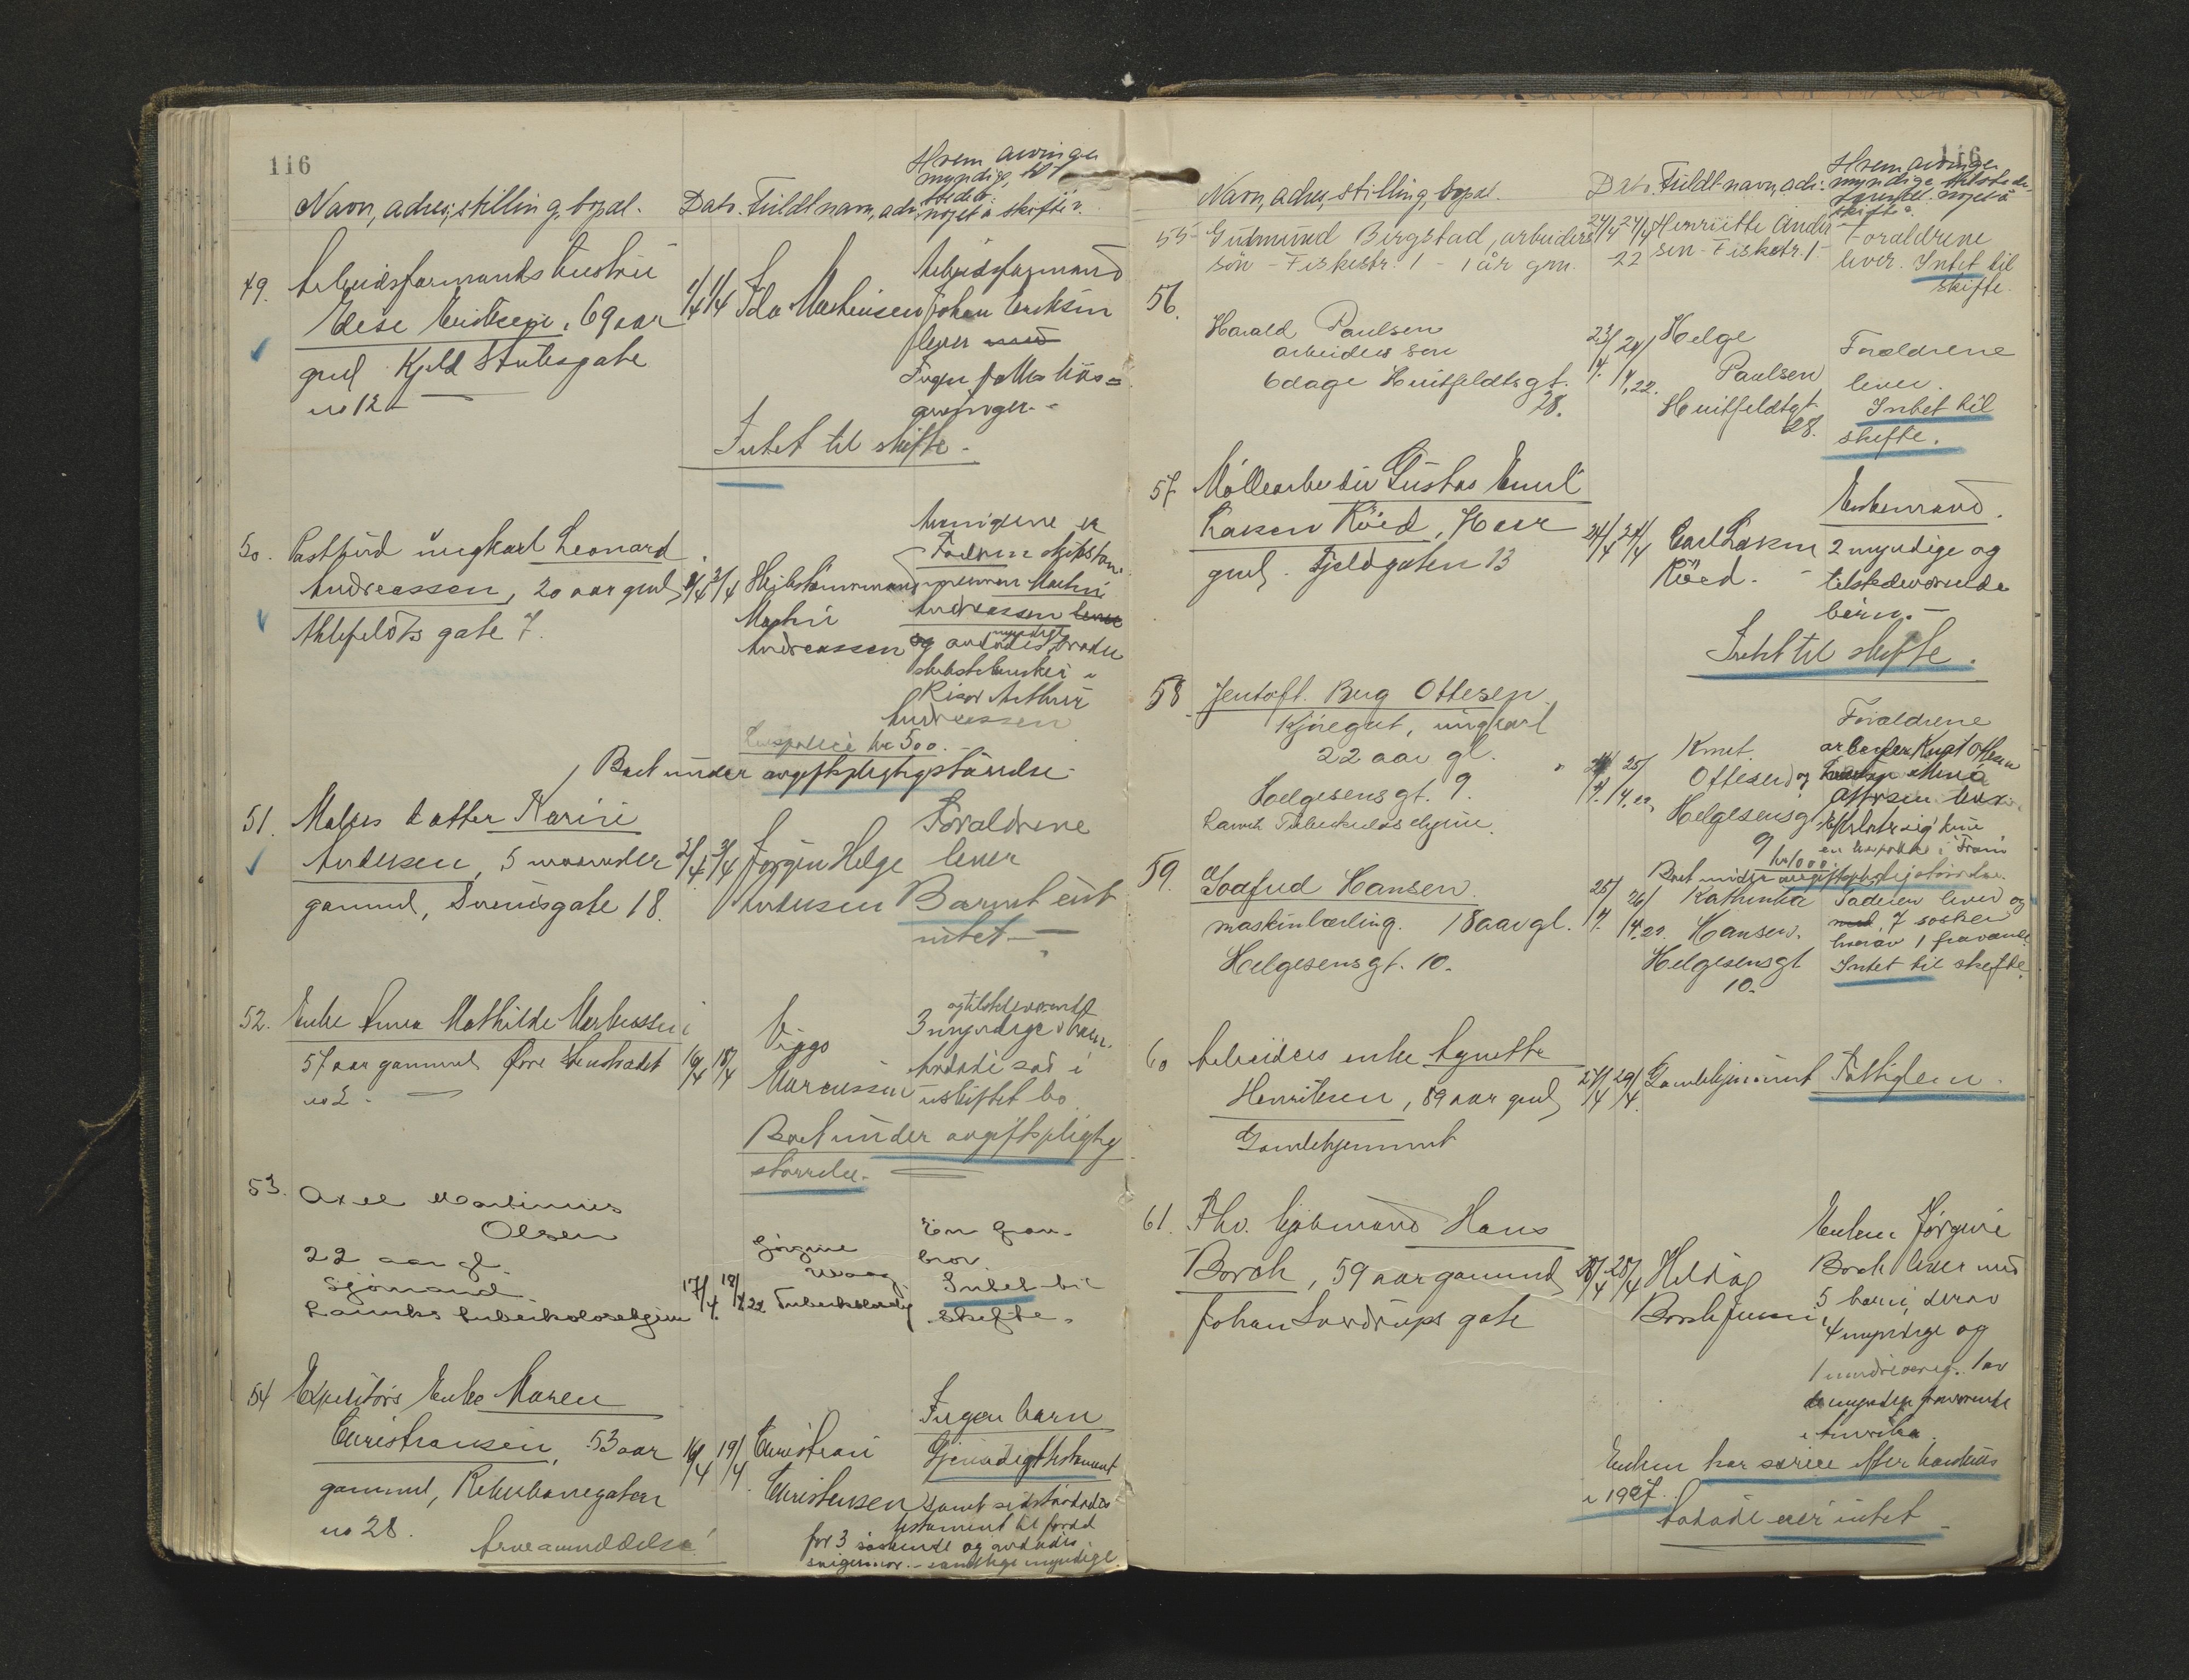 116
Navn, adres, stilling, bopæl.
Dato.
Fuldt navn, adr.
Hvem arvinger
myndige, til
stede.
noget å skifte?
49.
Arbeidsformands hustru
Elise Eriksen, 69 aar
gml Kjeld Stubsgate
no 12
1/4 1/4
Ida Mathiesen
Arbeidsformand
Johan Eriksen
lever med
Ingen fælles livs=
arvinger.-
Intet til skifte -
50.
Postbud ungkarl Leonard
Andreassen, 20 aar gml
Ahlefeldts gate 7.
2/4 3/4
Martin
Andreassen
Arvingerne er
Faderen
Martin
Andreassen lever
og avdødes myndige broder
Andreassen
Livspolice kr 500.-
Boet under avgiftspligtig størrelse
51.
datter Karin
Andersen, 5 maaneder
gammel, Svensgate 18.
2/4 3/4
Jørgen Helge
Andersen
Forældrene
lever
Barnet eiet
intet -
52.
Enke Anna Mathilde Markussen
57 aar gammel Øvre
no 2.
16/4 18/4
Viggo
Marcussen
og tilstedeværende
3 myndige barn.
Avdøde sad i
uskiftet bo
Boet under avgiftspligtig
størrelse.
53.
Axel Martinius
Olsen
22 aar gl.
Sjømand
Launks tuberkulosehjem
17/4. 18/4 22
Jørgine
Tuberkulosehj
En
bror
Intet til
skifte.
54
Expeditørs Enke Maren
Christiansen, 53 aar
gammel, Reberbanegaten
no 28.
16/4 19/4
Christian
Christensen
Ingen barn
Gjensidig testament
samt sidstavdødes
testament til fordel
for 3 søskende og avdødes
svigermor. - samtlige myndige
Arveanmeldelse!
116
Navn, adres, stilling, bopæl.
Dato.
Fuldt navn, adr.
Hvem arvinger
myndige, tilstede-
noget å
skifte?
55
Gudmund Bergstad, arbeiders
søn - Fiskestr. 1 - 1 år gm.
24/4 24/4 22
Henriette Ander
sen - Fiskestr. 1 -
Forældrene
lever. Intet til
skifte.
56.
Harald Paulsen
arbeiders søn
6 dage Huitfeldtsgt.
28.
23/4. 24/4.22.
Helge
Paulsen
Huitfeldtsgt
28.
Forældrene
lever.
Intet til
skifte.
57
Møllearbeider Gustav Emil
Røed,
gml. Fjeldgaten 13
24/4 24/4
Carl
Røed. -
Enkemand.
2 myndige og
tilstedeværende
børn. -
Intet til skifte.
58
Jentoft Berg Ottesen
Kjøregut, ungkarl
22 aar gl.
Helgesensgt. 9.
Tuberkulosehjem.
25/4.22
Knut
Ottesen og
Helgesensg
9
Forældrene
arbeider Knut Ottesen
Ottesen lever.
kr 1000.
Boet under avgiftspligtig størrelse.
59.
Godfred Hansen
maskinlærling. 18 aar gl.
Helgesensgt. 10.
25/4. 26/4.22.
Kathinka
Hansen.
Helgesensgt
10.
Faderen lever og
med, 7 søsken
hvorav 1 fraværende
Intet til skifte.
60
Arbeiders enke Agnethe
Henriksen, 89 aar gml
Gamlehjemmet
27/4 29/4.
Gamlehjemmet
Fattiglem -
61.
Fhv. kjøbmand Hans
Borch, 59 aar gammel
Johan Sverdrups gate
25/4
Borch
Enken Jørgine
Borch lever med
5 børn, derav
4 myndige og
1 mindreaarig. 1 av
de myndige fraværende
i Amerika.
Enken har særeie efter konkurs
i 1907.
Avdøde eier intet -